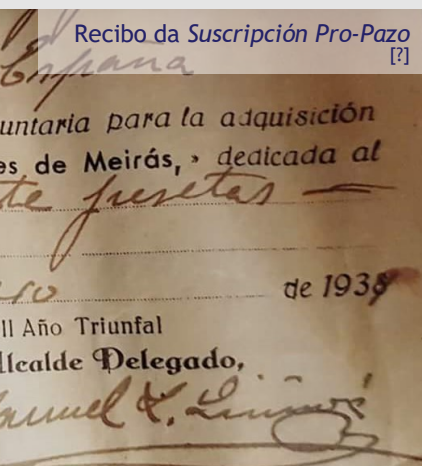 Recibo da Suscripción Pro-Pazo
[?]
España
untaria para la adquisición
es de Meirás, » dedicada al
te pesetas
ro de 1938
II Año Triunfal
lcalde Delegado,
anuel